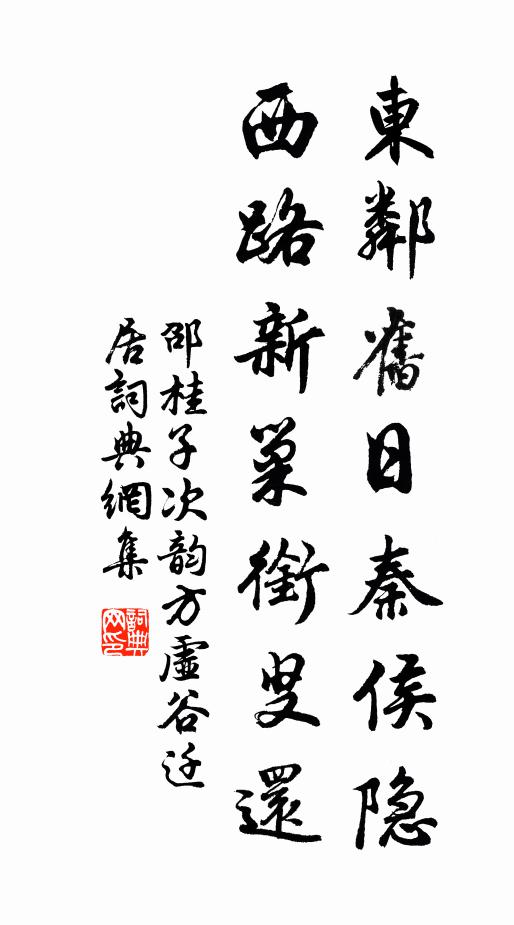 東鄰舊日秦侯隐
西路新巢衔叟還
邵桂子次韵方虚谷迁
居詞典網集
詞典
网印